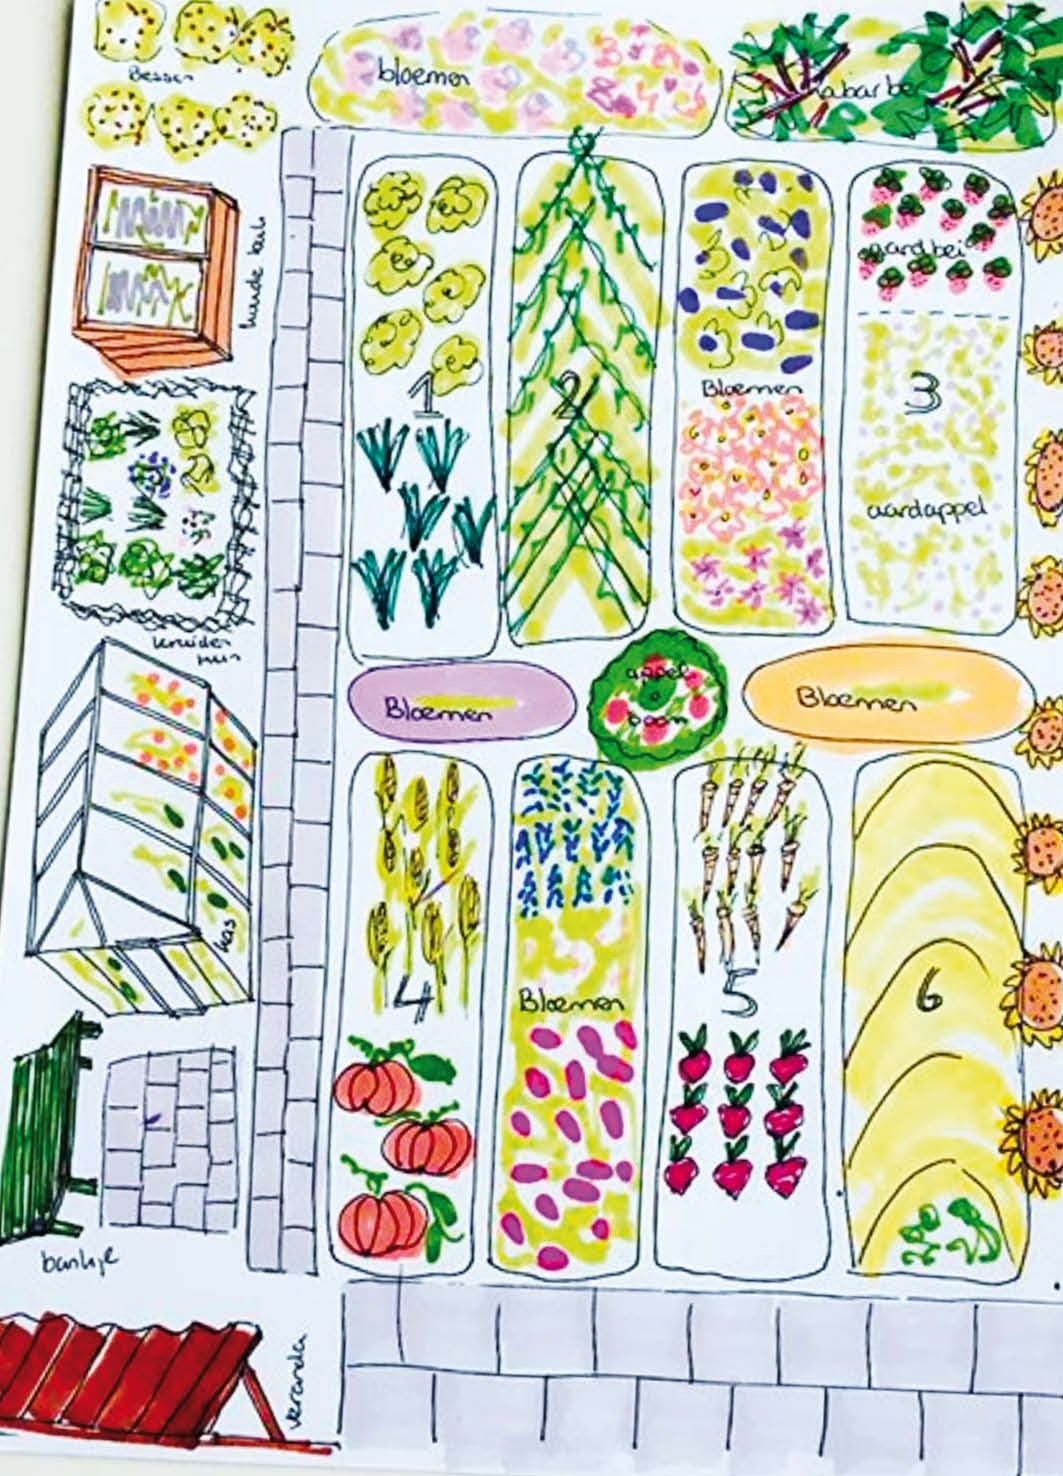 Bessen
bloemen
rabarber
hunde bak
1
2
Bloemen
aardbei
3
aardappel
kruiden
tuin
Bloemen
appel
boom
Bloemen
kas
4
Bloemen
5
6
bankje
veranda